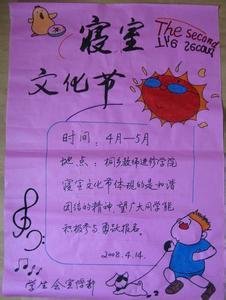 寝室
The second
文化节
时间：4月—5月
地点：桐乡教师进修学院
寝室文化节体现的是和谐
团结的精神，望广大同学能
积极参与踊跃报名。
2008.4.14.
学生会宣传部